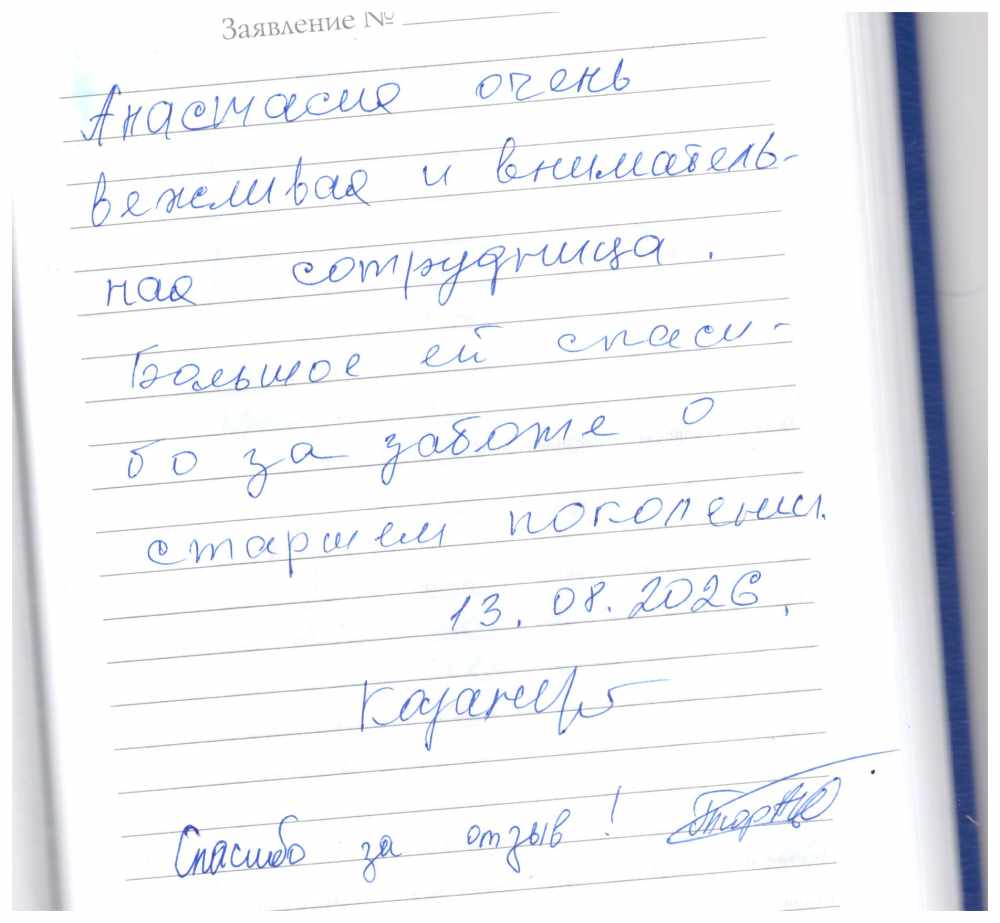 Заявление №
Анастасия очень
вежливая и вниматель-
ная сотрудница.
Большое ей спаси-
бо за заботе о
старшем поколении.
13.08.2026.
Спасибо за отзыв!